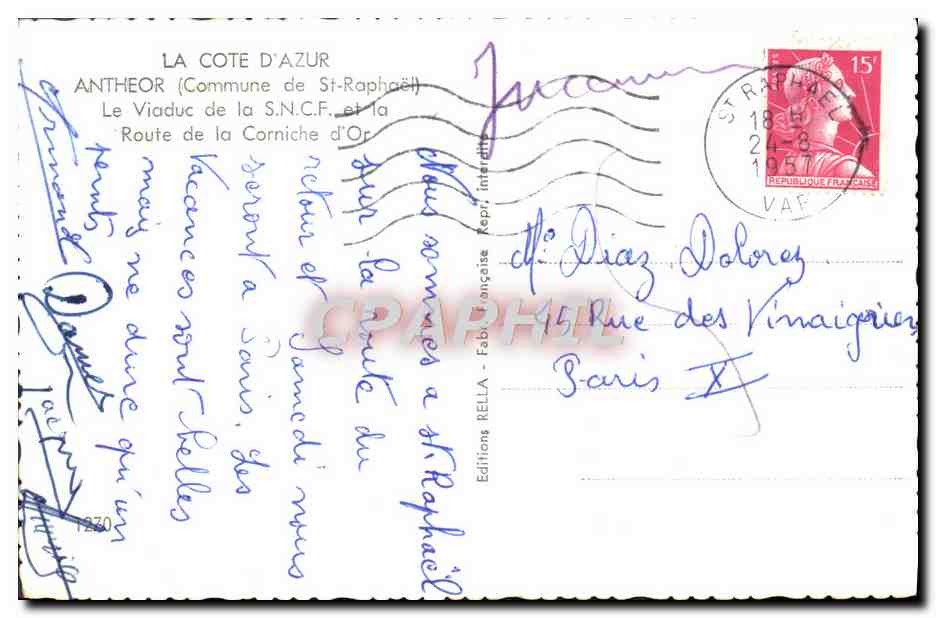 LA COTE D'AZUR
ANTHEOR (Commune de St-Raphaël)
Le Viaduc de la S.N.C.F. et la
Route de la Corniche d'Or
Nous sommes a St. Raphaël
sur la route du
retour et Samedi nous
seront a Paris. Les
Vacances sont belles
mais ne dure qu'un
temts
1230
Editions RELLA - Fabr. Française Repr. interdite
ST RAPHAEL
18 H
24-8
1957
VAR
15F
REPUBLIQUE FRANÇAISE
Diaz Dolorez
45 Rue des Vinaigriers
Paris X
CPAPHIL